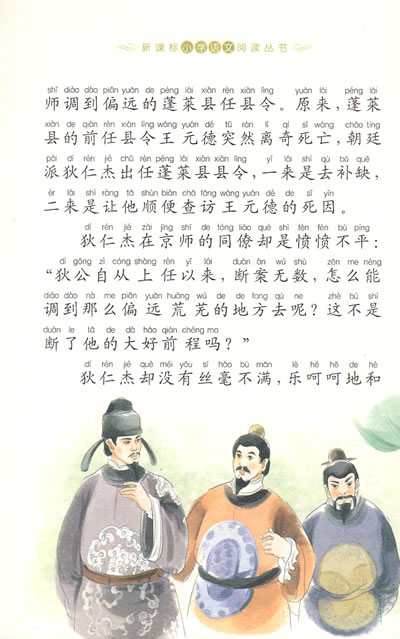 新课标小学语文阅读丛书
shī diào dào piān yuǎn de péng lái xiàn rèn xiàn lìng yuán lái péng lái
师调到偏远的蓬莱县任县令。原来，蓬莱
xiàn de qián rèn xiàn lìng wáng yuán dé tū rán lí qí sǐ wáng cháo tíng
县的前任县令王元德突然离奇死亡，朝廷
pài dí rén jié chū rèn péng lái xiàn xiàn lìng yī lái shì qù bǔ quē
派狄仁杰出任蓬莱县县令，一来是去补缺，
èr lái shì ràng tā shùn biàn chá fǎng wáng yuán dé de sǐ yīn
二来是让他顺便查访王元德的死因。
dí rén jié zài jīng shī de tóng liáo què shì fèn fèn bù píng
狄仁杰在京师的同僚却是愤愤不平：
dí gōng zì cóng shàng rèn yǐ lái duàn àn wú shù zěn me néng
“狄公自从上任以来，断案无数，怎么能
diào dào nà me piān yuǎn huāng wú de de fang qù ne zhè bú shì
调到那么偏远荒芜的地方去呢？这不是
duàn le tā de dà hǎo qián chéng ma
断了他的大好前程吗？”
dí rén jié què méi yǒu sī háo bù mǎn lè hē hē de hé
狄仁杰却没有丝毫不满，乐呵呵地和